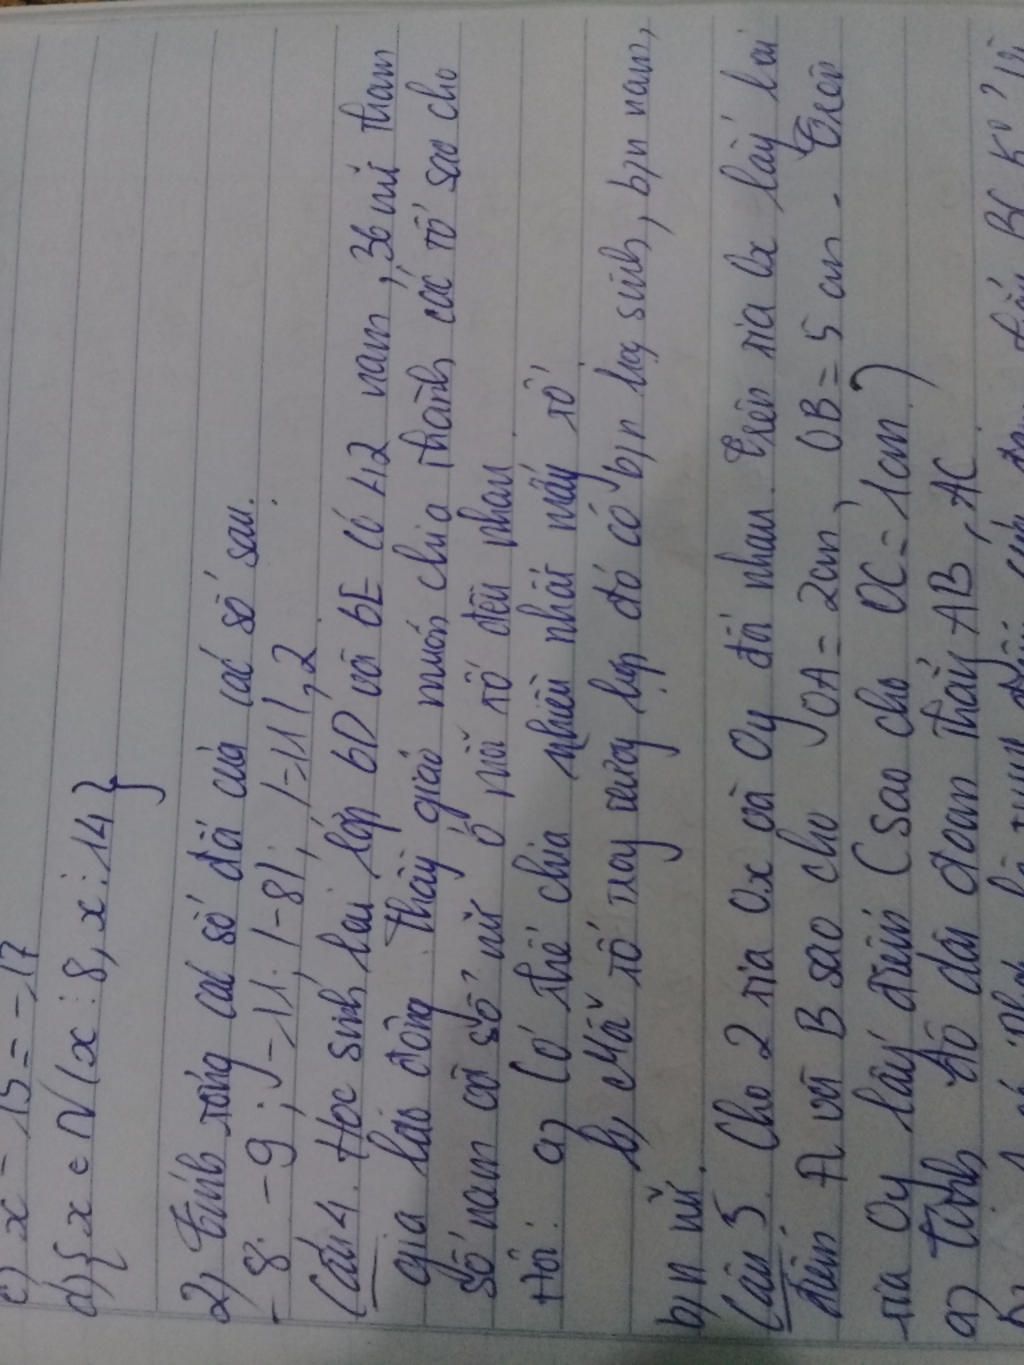 c) x - 15 = -17
d) { x ∈ N / x ⋮ 8, x ⋮ 14 }
2) Tính tổng các số đối của các số sau.
- 8. - 9 ; - 11; |-8| ; |-11|, 2
Câu 4. Học sinh hai lớp 6D và 6E có 42 nam, 36 nữ tham
gia lao động. Thầy giáo muốn chia thành các tổ sao cho
số nam và số nữ ở mỗi tổ đều nhau.
Hỏi: a) Có thể chia nhiều nhất mấy tổ
b, Mỗi tổ trong lớp đó có b/n học sinh, b/n nam,
b/n nữ.
Câu 5. Cho 2 tia Ox và Oy đối nhau. Trên tia Ox lấy hai
điểm A và B sao cho OA = 2cm, OB = 5 cm. Trên
tia Oy lấy điểm C sao cho OC = 1cm.
a) Tính độ dài đoạn thẳng AB, AC